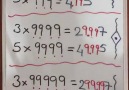 5 × 999 = 4995
3 × 9999 = 29997
5 × 9999 = 49995
3 × 99999 = 299997